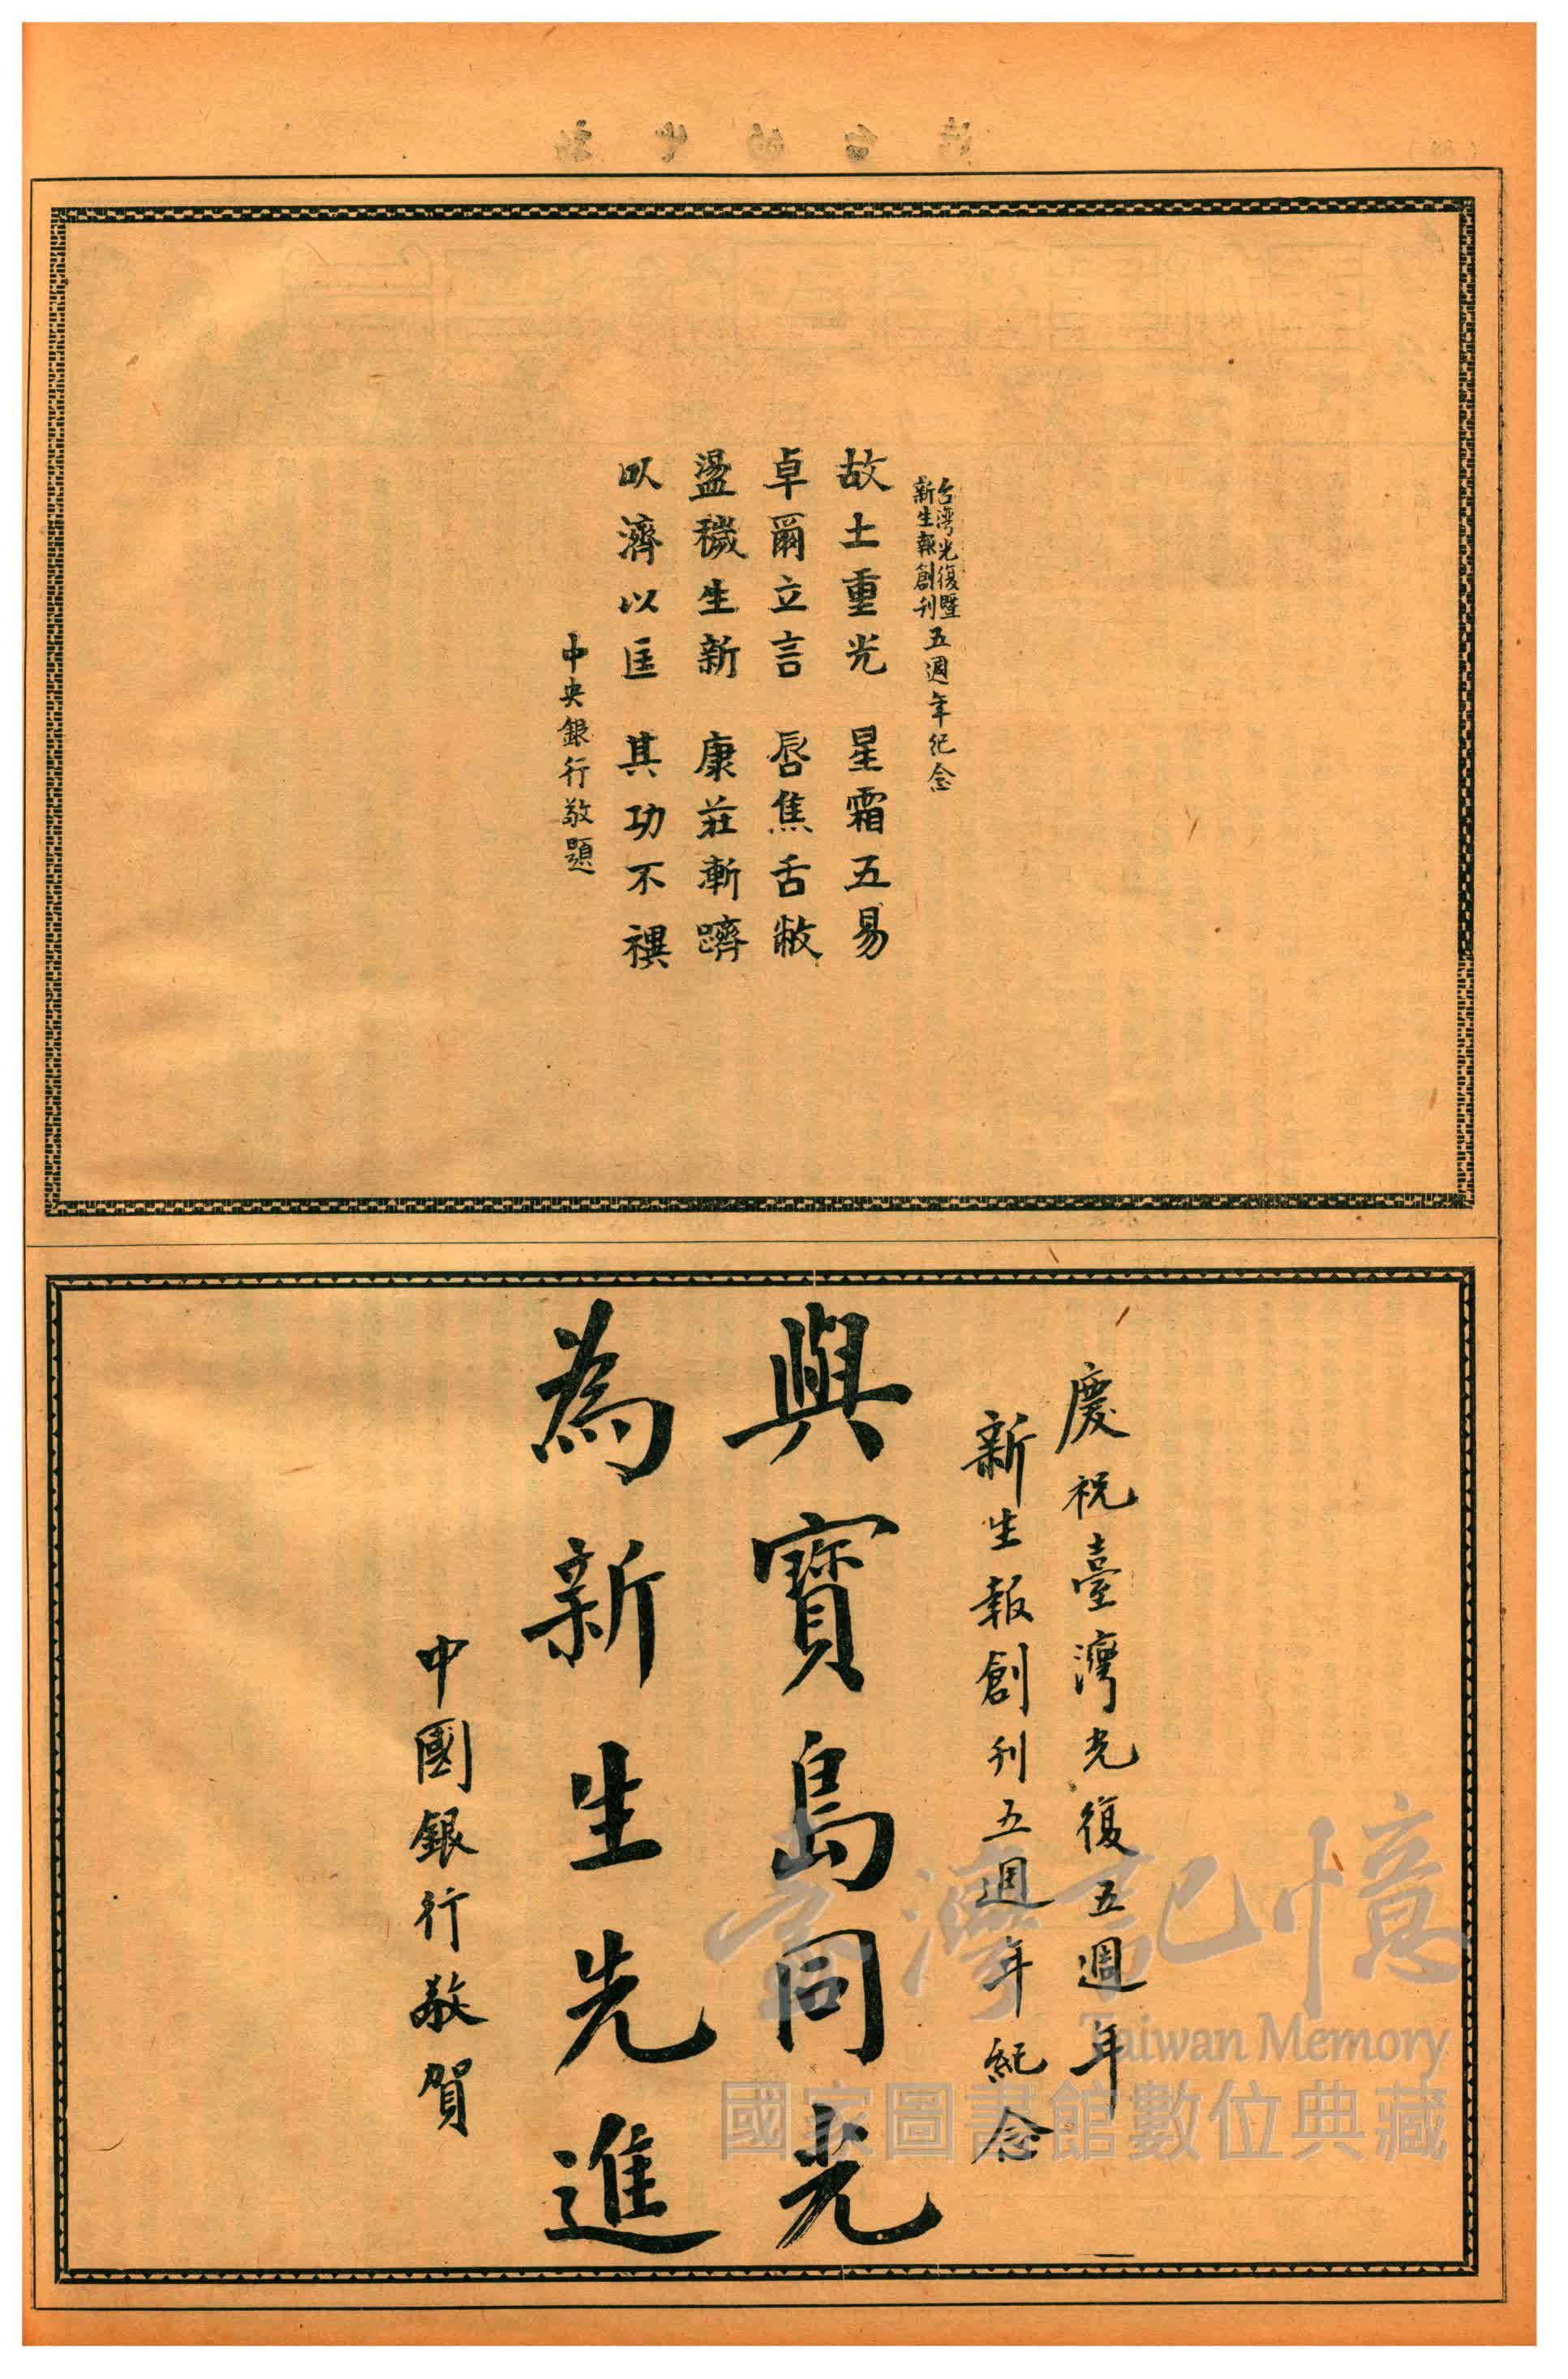 台灣光復暨
新生報創刊
五週年紀念
故土重光 星霜五易
卓爾立言 唇焦舌敝
盪穢生新 康莊漸躋
㕥濟以匡 其功不禩
中央銀行敬題
慶祝臺灣光復五週年
新生報創刊五週年紀念
與寶島同光
為新生先進
中國銀行敬賀
臺灣記憶
Taiwan Memory
國家圖書館數位典藏